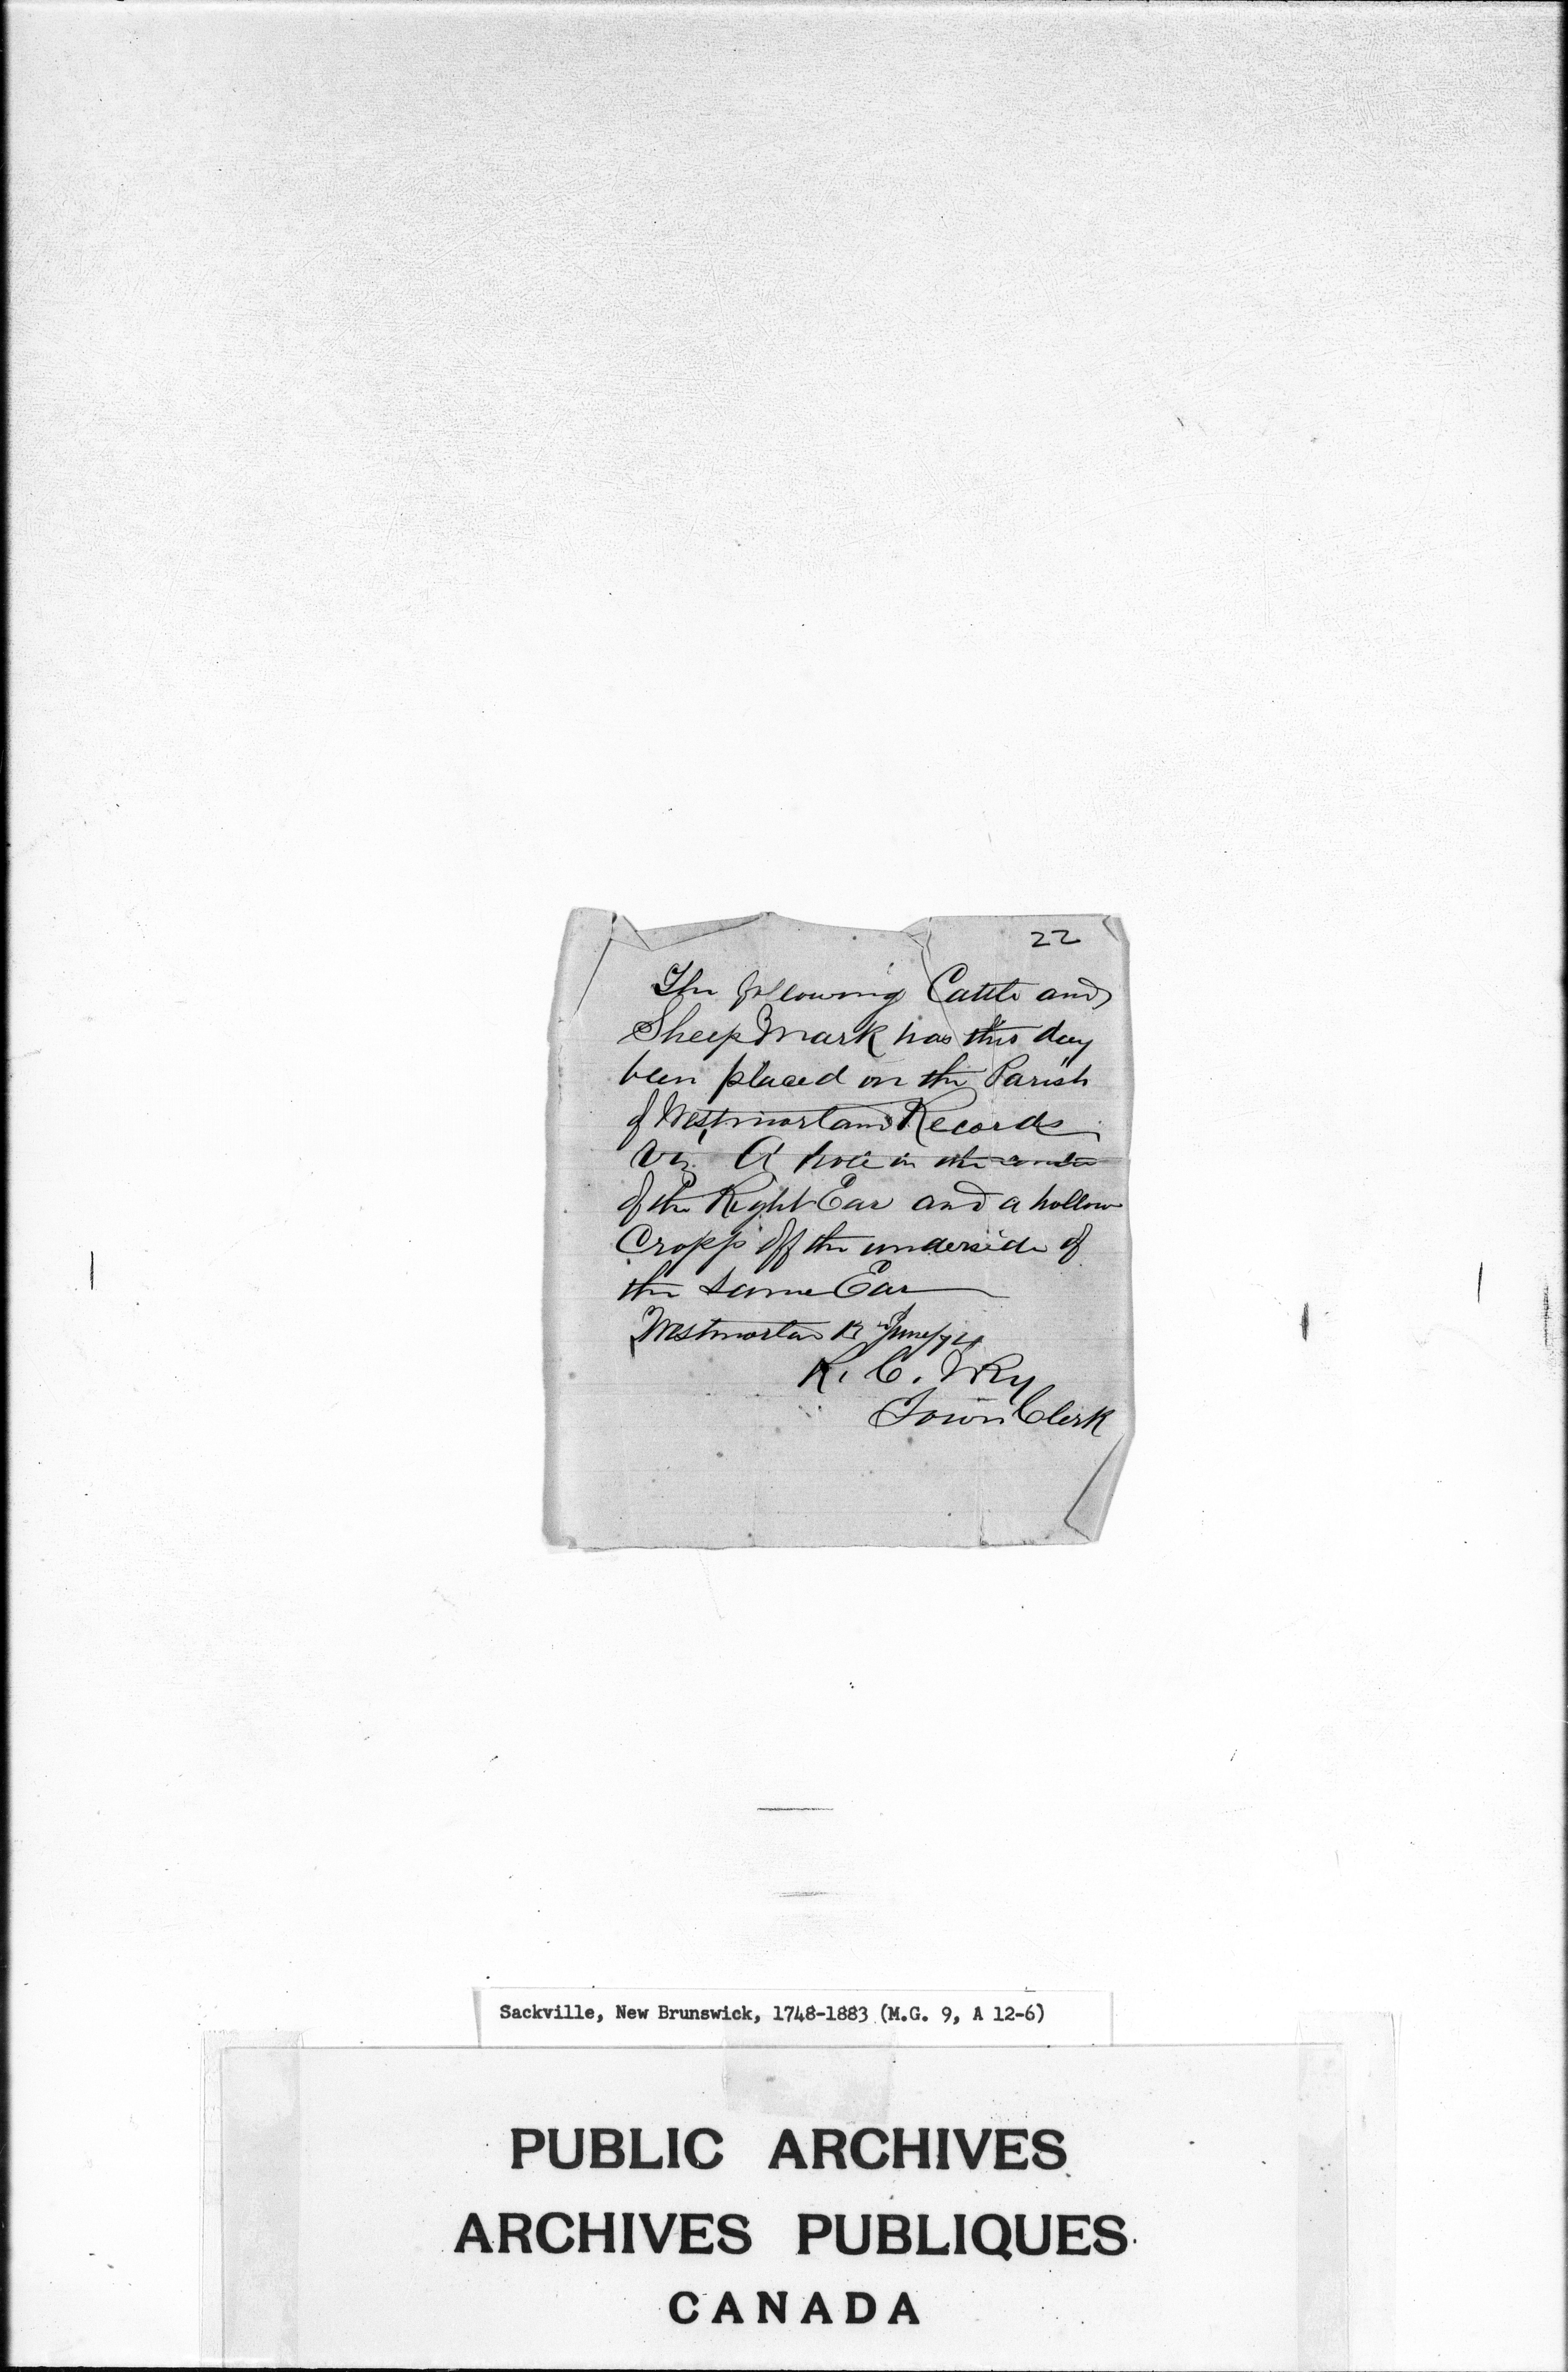 22
The following Cattle and
Sheep Mark has this day
been placed on the Parish
of Westmorland Records
Viz A hole in the center
of the Right Ear and a hollow
Cropp off the underside of
the same Ear
Westmorland June/74
R. C. Wry
Town Clerk
Sackville, New Brunswick, 1748-1883 (M.G. 9, A 12-6)
PUBLIC ARCHIVES
ARCHIVES PUBLIQUES
CANADA